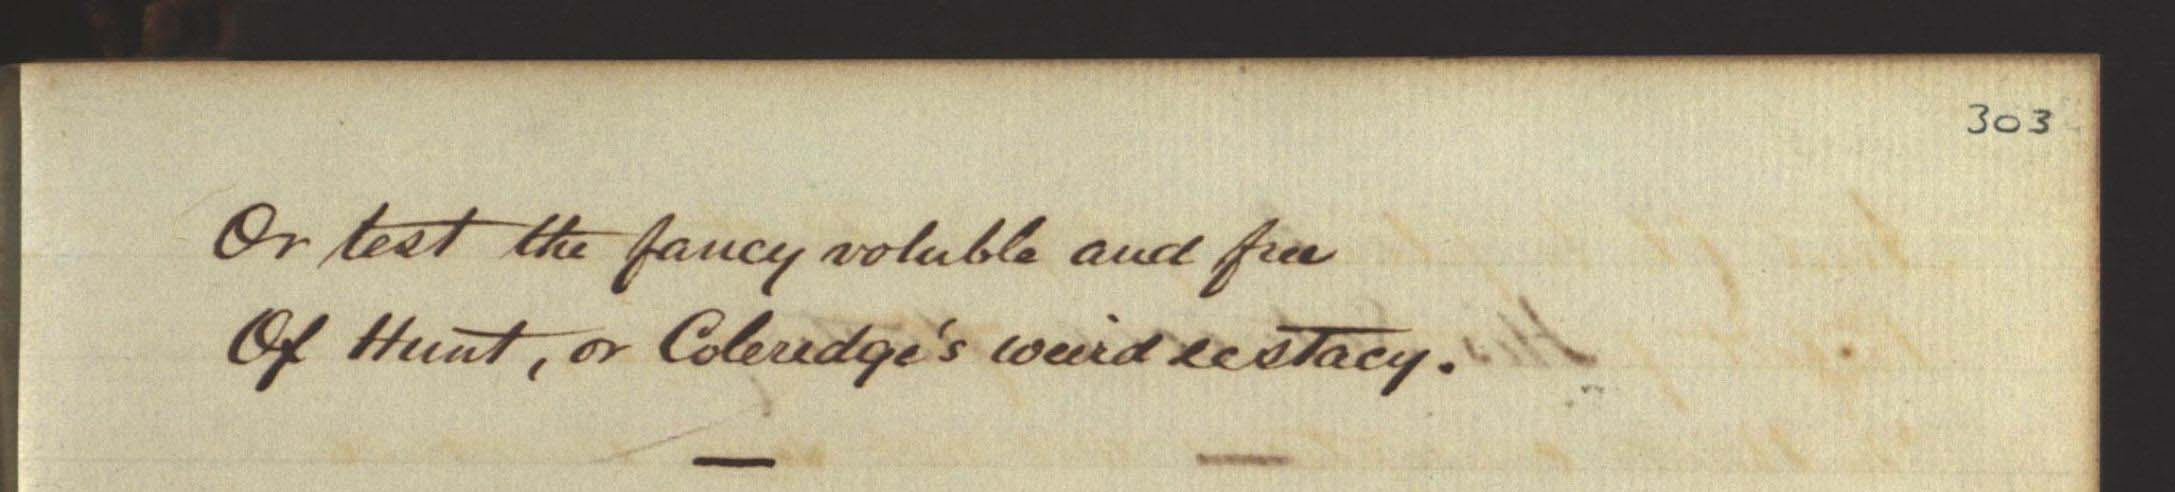 303
Or test the fancy voluble and free
Of Hunt, or Coleredge's weird ecstacy.